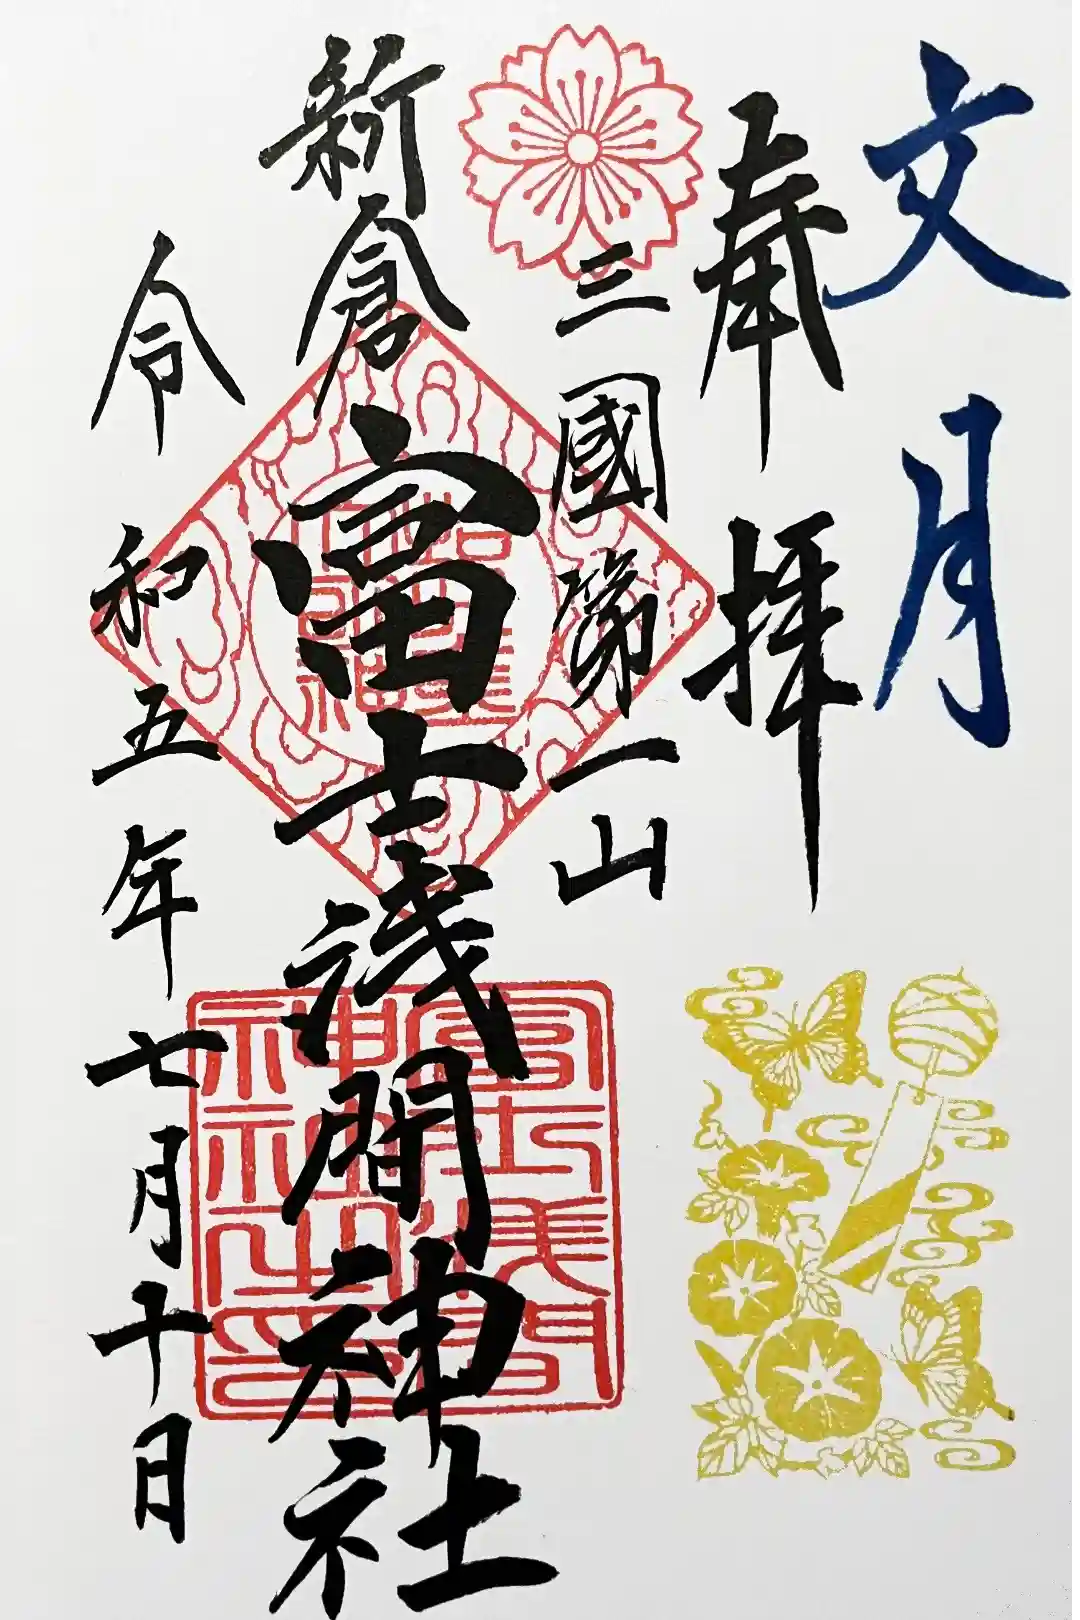 文月
奉拝
三國第一山
新倉富士浅間神社
令和五年七月十日
冨士浅間
神社之印